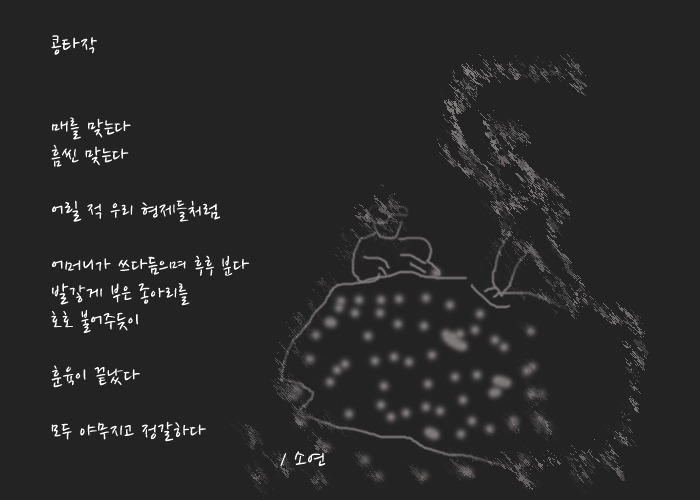 콩타작
매를 맞는다
흠씬 맞는다
어릴 적 우리 형제들처럼
어머니가 쓰다듬으며 후후 분다
발갛게 부은 종아리를
호호 불어주듯이
훈육이 끝났다
모두 야무지고 정갈하다
/ 소연